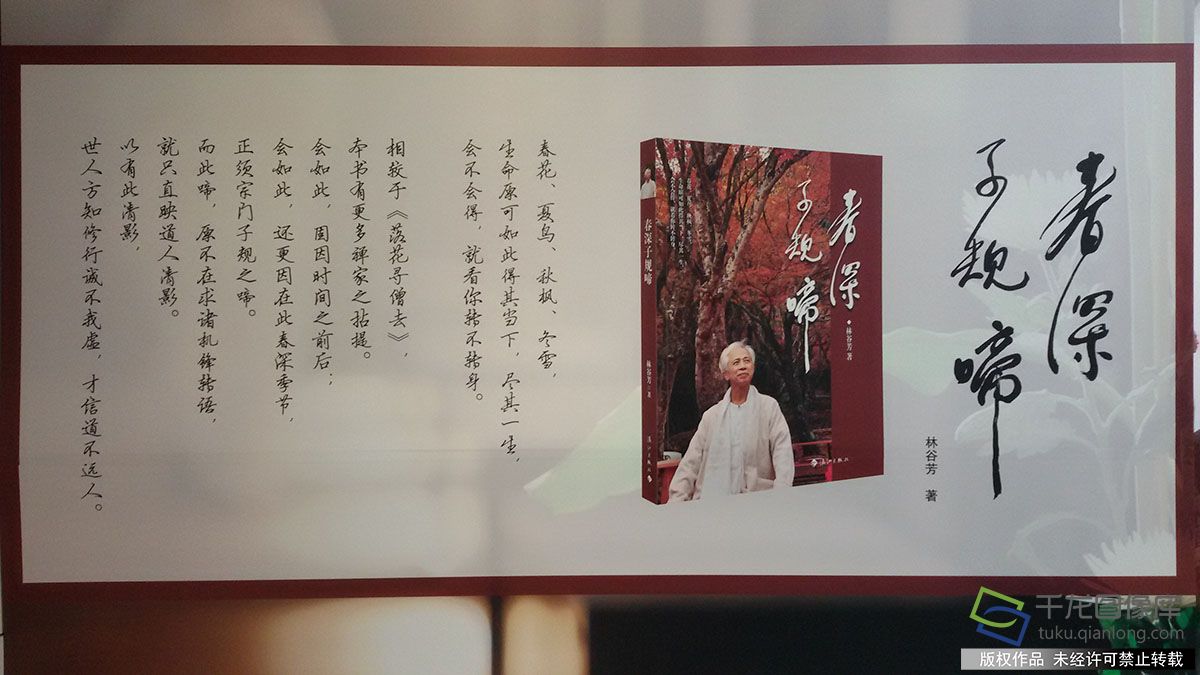 春深
子规啼
林谷芳 著
春深
子规啼
林谷芳 著
漓江出版社
春深子规啼
林谷芳 著
漓江出版社
春花、夏鸟、秋枫、冬雪，
生命原可如此得其当下，尽其一生，
会不会得，就看你转不转身。
相较于《落花寻僧去》，
本书有更多禅家之拈提。
会如此，固因时间之前后；
会如此，还更因在此春深季节，
正须宗门子规之啼。
而此啼，原不在求诸机锋转语，
就只直映道人清影。
以有此清影，
世人方知修行诚不我虚，才信道不远人。
千龙图像库
tuku.qianlong.com
版权作品 未经许可禁止转载